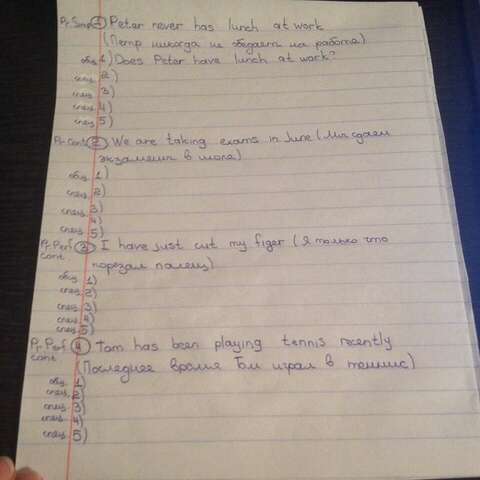 Pr. Simp 1 Peter never has lunch at work
(Петр никогда не обедает на работе)
общ. 1) Does Peter have lunch at work?
спец. 2)
спец. 3)
спец. 4)
спец. 5)
Pr. Cont 2 We are taking exams in June (Мы сдаем
экзамены в июле)
общ. 1)
спец. 2)
спец. 3)
спец. 4)
спец. 5)
Pr. Perf 3 I have just cut my figer (Я только что
cont. порезал палец)
общ. 1)
спец. 2)
спец. 3)
спец. 4)
спец. 5)
Pr. Perf 4 Tom has been playing tennis recently
cont (Последнее время Том играл в теннис)
общ. 1)
спец. 2)
спец. 3)
спец. 4)
спец. 5)